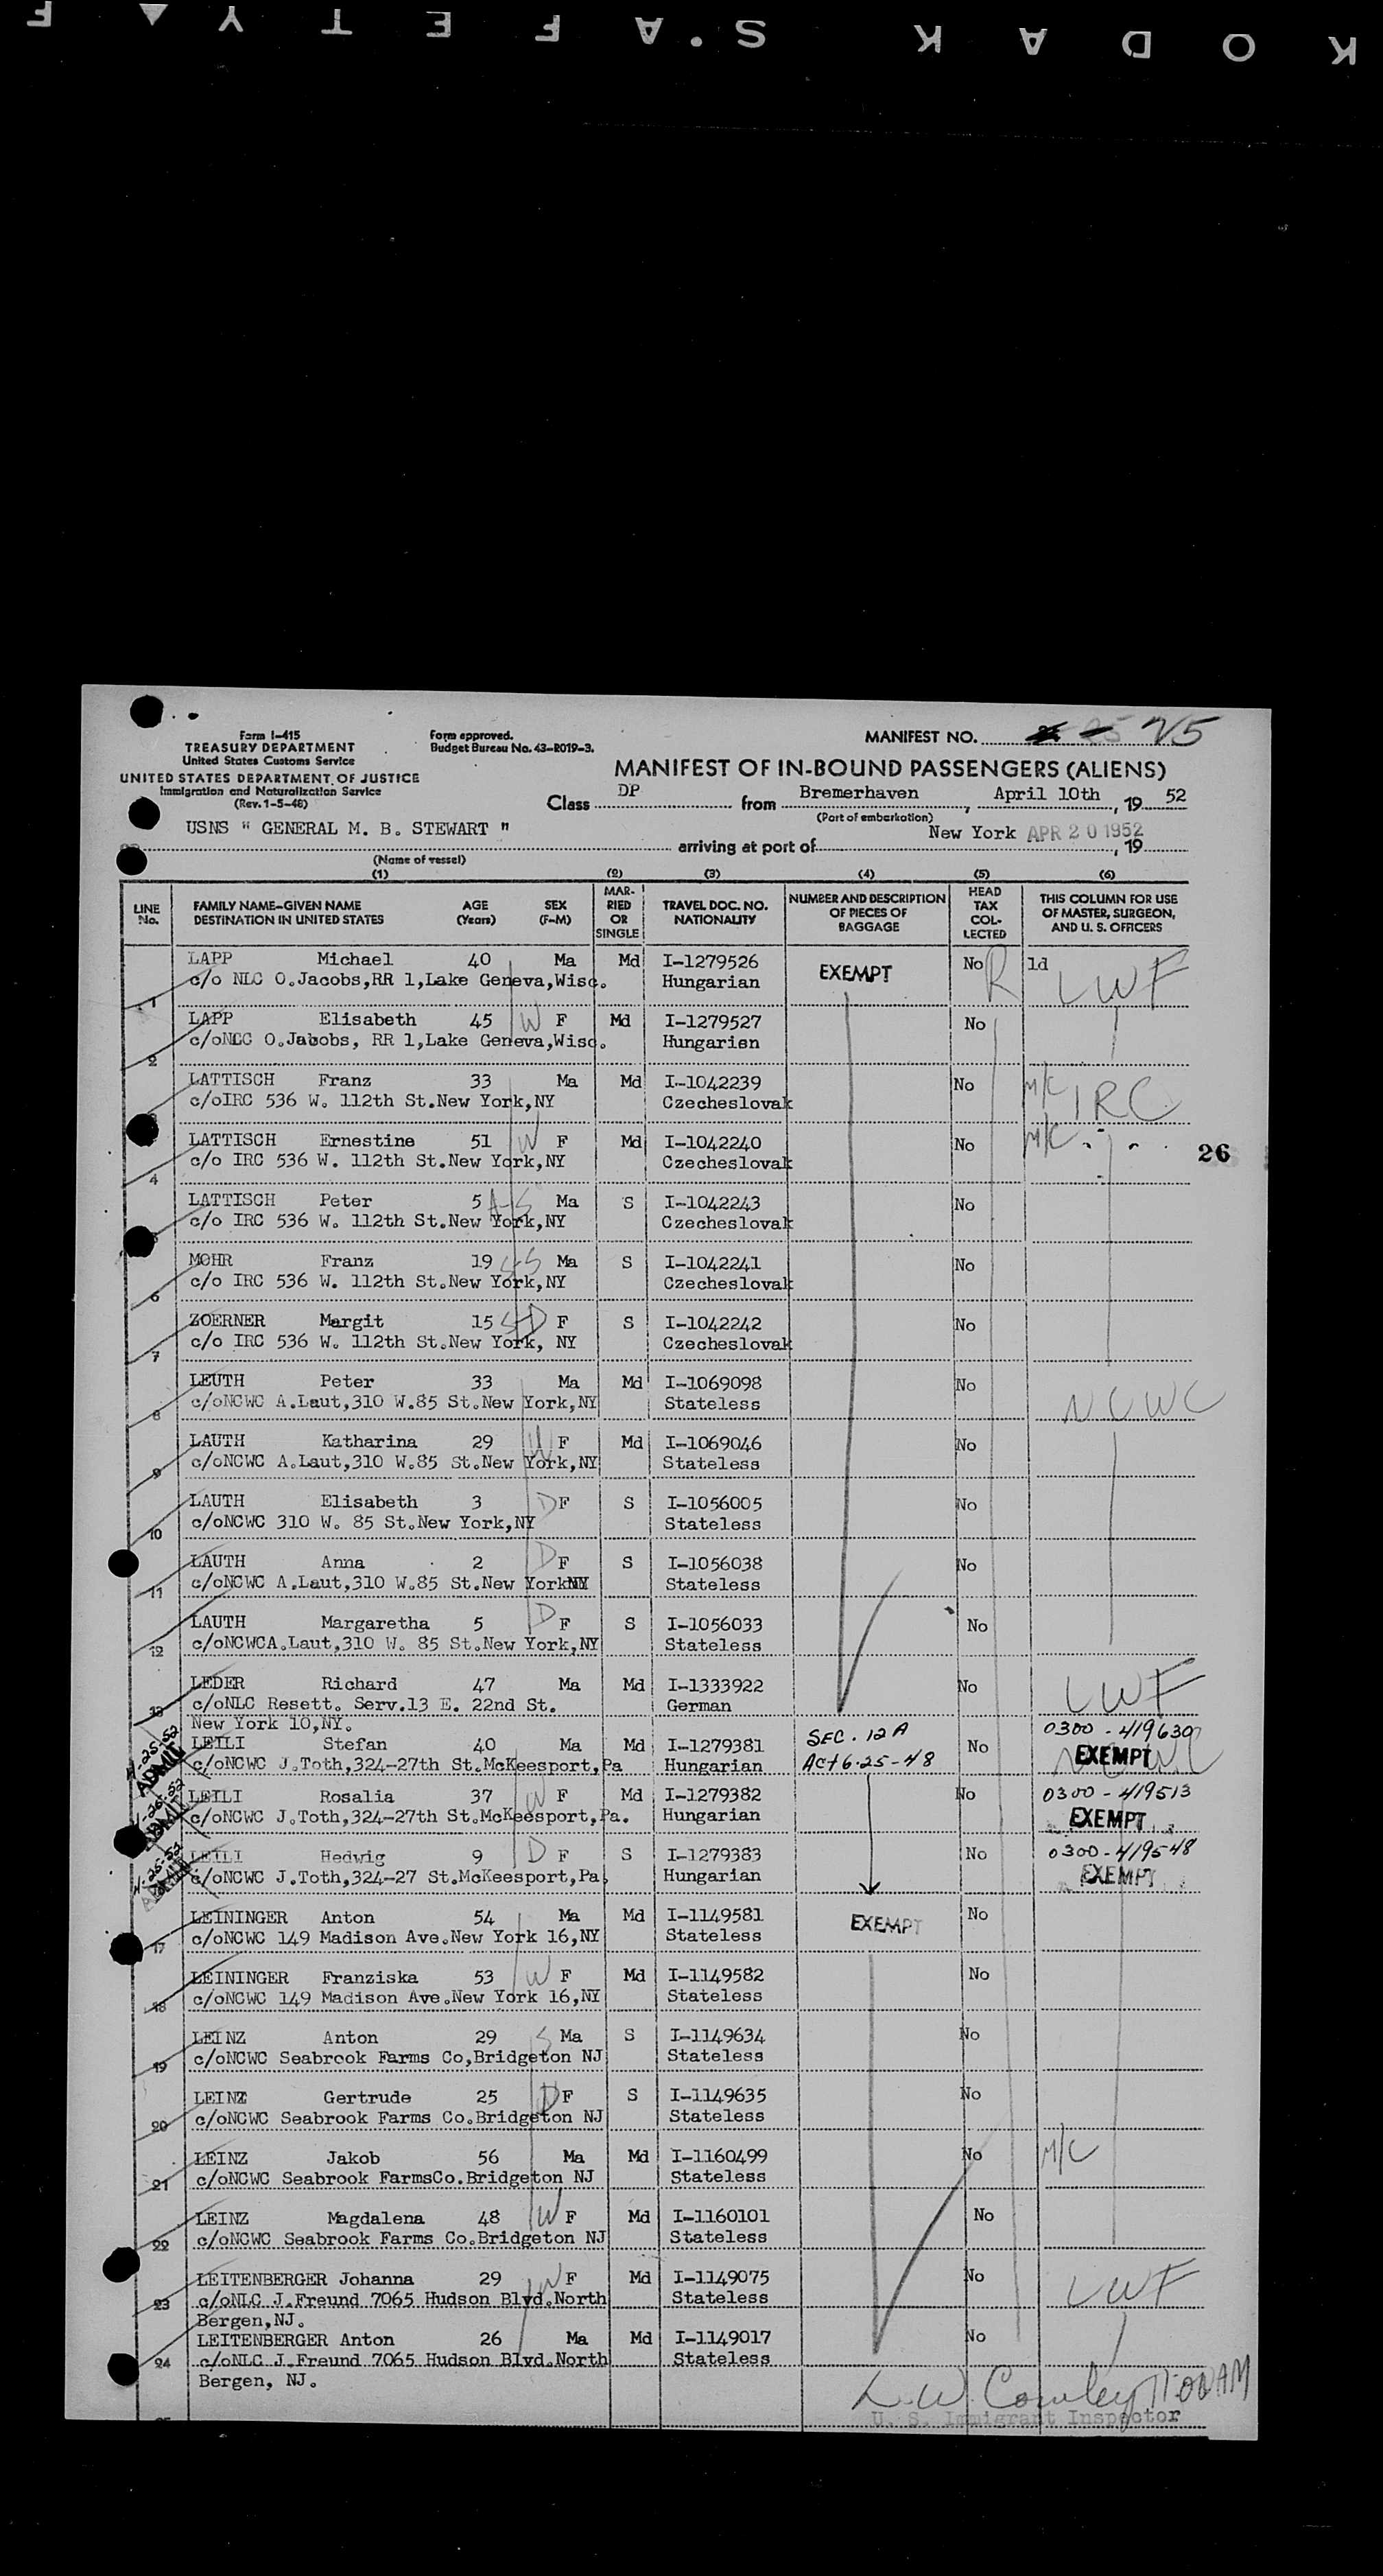 KODAK S'.AFETY ▲ F
Form I-415
TREASURY DEPARTMENT
United States Customs Service
UNITED STATES DEPARTMENT OF JUSTICE
Immigration and Naturalization Service
(Rev. 1-5-48)
Form approved.
Budget Bureau No. 43-R019-3.
MANIFEST NO. 25
MANIFEST OF IN-BOUND PASSENGERS (ALIENS)
Class DP from Bremerhaven, April 10th, 19 52
(Port of embarkation)
USNS " GENERAL M. B. STEWART " arriving at port of New York APR 20 1952, 19
(Name of vessel)
(1) (2) (3) (4) (5) (6)
LINE No. FAMILY NAME-GIVEN NAME DESTINATION IN UNITED STATES AGE (Years) SEX (F-M) MARRIED OR SINGLE TRAVEL DOC. NO. NATIONALITY NUMBER AND DESCRIPTION OF PIECES OF BAGGAGE HEAD TAX COLLECTED THIS COLUMN FOR USE OF MASTER, SURGEON, AND U. S. OFFICERS
LAPP Michael 40 Ma Md I-1279526 EXEMPT No R ld LWF
1 c/o NLC O.Jacobs,RR 1,Lake Geneva,Wisc. Hungarian
LAPP Elisabeth 45 W F Md I-1279527 No
2 c/oNCC O.Jabobs, RR 1,Lake Geneva,Wisc. Hungarien
LATTISCH Franz 33 Ma Md I-1042239 No M/C IRC
3 c/oIRC 536 W. 112th St.New York,NY Czecheslovak
LATTISCH Ernestine 51 W F Md I-1042240 No M/C
4 c/o IRC 536 W. 112th St.New York,NY Czecheslovak
26
LATTISCH Peter 5 Ma S I-1042243 No
c/o IRC 536 W. 112th St.New York,NY Czecheslovak
MOHR Franz 19 Ma S I-1042241 No
6 c/o IRC 536 W. 112th St.New York,NY Czecheslovak
ZOERNER Margit 15 F S I-1042242 No
7 c/o IRC 536 W. 112th St.New York, NY Czecheslovak
LEUTH Peter 33 Ma Md I-1069098 No NCWC
8 c/oNCWC A.Laut,310 W.85 St.New York,NY Stateless
LAUTH Katharina 29 W F Md I-1069046 No
9 c/oNCWC A.Laut,310 W.85 St.New York,NY Stateless
LAUTH Elisabeth 3 D F S I-1056005 No
10 c/oNCWC 310 W. 85 St.New York,NY Stateless
LAUTH Anna 2 D F S I-1056038 No
11 c/oNCWC A.Laut,310 W.85 St.New YorkNY Stateless
LAUTH Margaretha 5 D F S I-1056033 No
12 c/oNCWCA.Laut,310 W. 85 St.New York,NY Stateless
LEDER Richard 47 Ma Md I-1333922 No LWF
13 c/oNLC Resett. Serv.13 E. 22nd St. German
New York 10,NY.
4-25-52 ADMIT LEILI Stefan 40 Ma Md I-1279381 SEC. 12A No 0300-419630
c/oNCWC J.Toth,324-27th St.McKeesport,Pa Hungarian Act 6-25-48 EXEMPT NCWC
4-25-52 ADMIT LEILI Rosalia 37 W F Md I-1279382 No 0300-419513
c/oNCWC J.Toth,324-27th St.McKeesport,Pa. Hungarian EXEMPT
4-25-52 ADMIT LEILI Hedwig 9 D F S I-1279383 No 0300-419548
c/oNCWC J.Toth,324-27 St.McKeesport,Pa. Hungarian EXEMPT
LEININGER Anton 54 Ma Md I-1149581 EXEMPT No
17 c/oNCWC 149 Madison Ave.New York 16,NY Stateless
LEININGER Franziska 53 W F Md I-1149582 No
18 c/oNCWC 149 Madison Ave.New York 16,NY Stateless
LEINZ Anton 29 S Ma S I-1149634 No
19 c/oNCWC Seabrook Farms Co,Bridgeton NJ Stateless
LEINZ Gertrude 25 D F S I-1149635 No
20 c/oNCWC Seabrook Farms Co.Bridgeton NJ Stateless
LEINZ Jakob 56 Ma Md I-1160499 No M/C
21 c/oNCWC Seabrook FarmsCo.Bridgeton NJ Stateless
LEINZ Magdalena 48 W F Md I-1160101 No
22 c/oNCWC Seabrook Farms Co.Bridgeton NJ Stateless
LEITENBERGER Johanna 29 W F Md I-1149075 No LWF
23 c/oNLC J.Freund 7065 Hudson Blvd.North Stateless
Bergen,NJ.
LEITENBERGER Anton 26 Ma Md I-1149017 No
24 c/oNLC J.Freund 7065 Hudson Blvd.North Stateless
Bergen, NJ.
L.W. Cowley 11:00AM
U. S. Immigrant Inspector